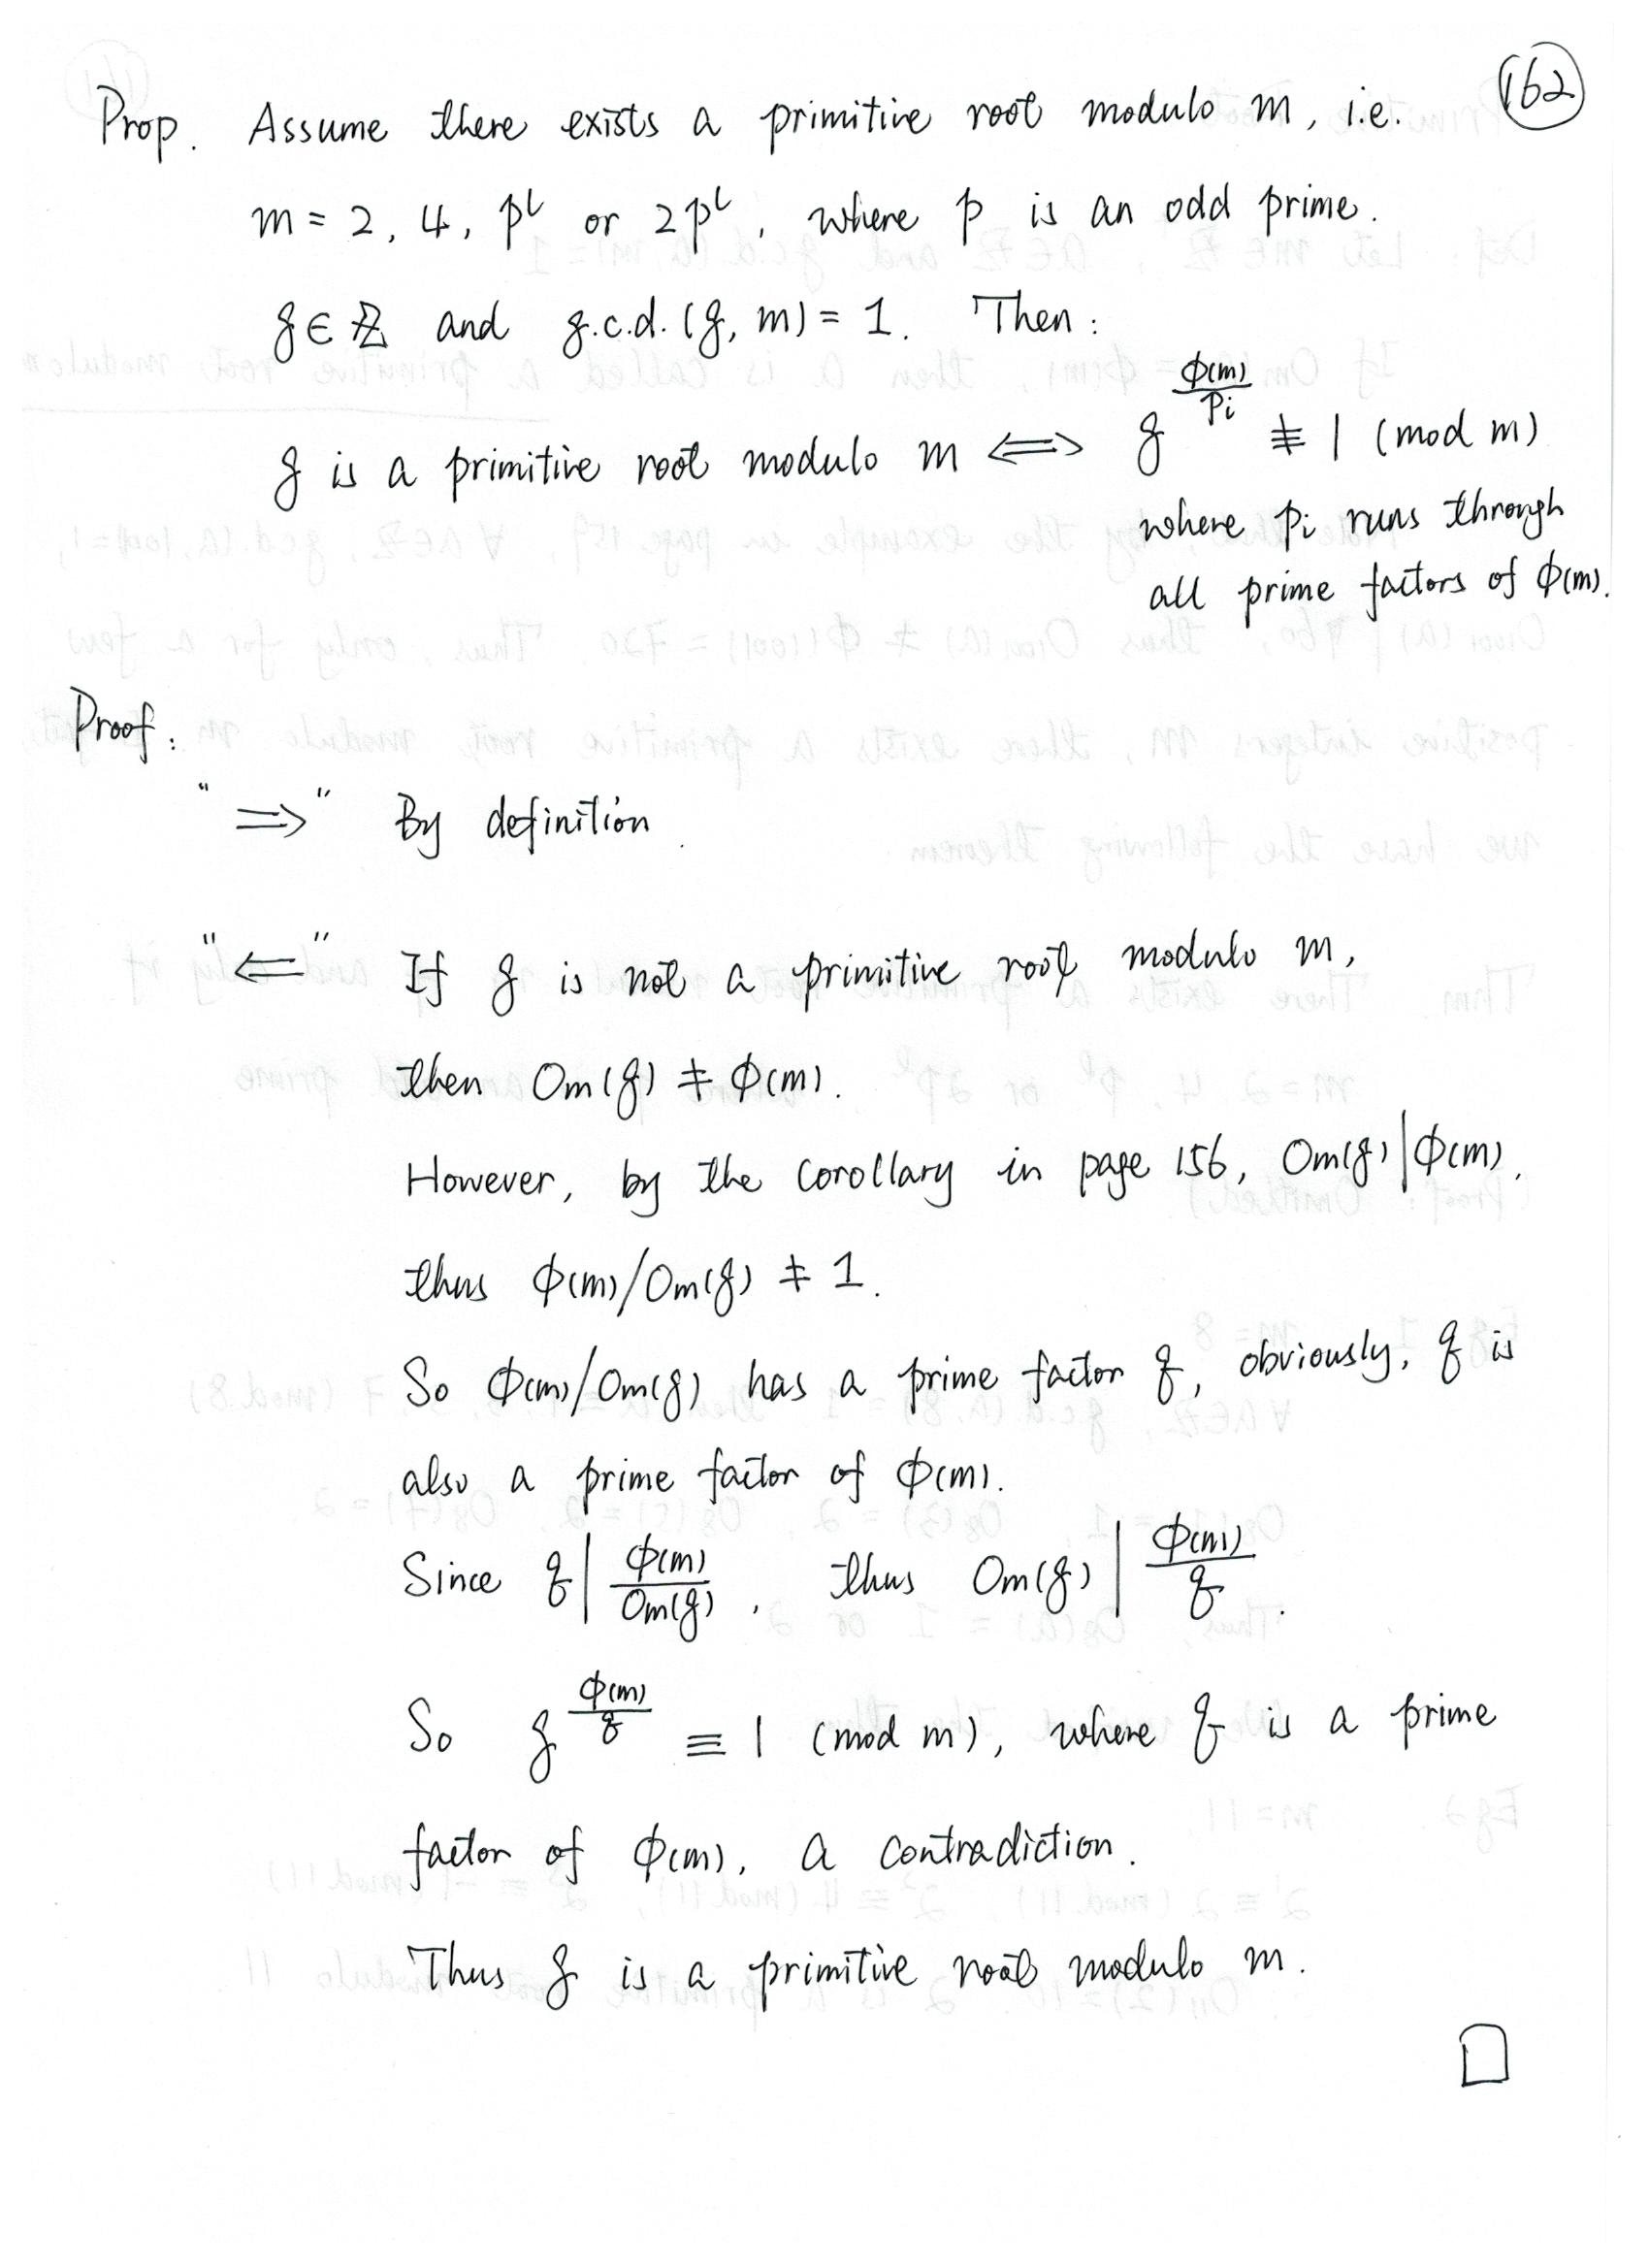 162
Prop. Assume there exists a primitive root modulo m, i.e.
m = 2, 4, p^l or 2p^l, where p is an odd prime.
g ∈ ℤ and g.c.d. (g, m) = 1. Then:
g is a primitive root modulo m ⟺ g^(φ(m)/pi) ≢ 1 (mod m)
where pi runs through
all prime factors of φ(m).
Proof:
"⟹" By definition.
"⟸" If g is not a primitive root modulo m,
then Om(g) ≠ φ(m).
However, by the corollary in page 156, Om(g) | φ(m),
thus φ(m)/Om(g) ≠ 1.
So φ(m)/Om(g) has a prime factor q, obviously, q is
also a prime factor of φ(m).
Since q | φ(m)/Om(g), thus Om(g) | φ(m)/q.
So g^(φ(m)/q) ≡ 1 (mod m), where q is a prime
factor of φ(m), a contradiction.
Thus g is a primitive root modulo m.
□